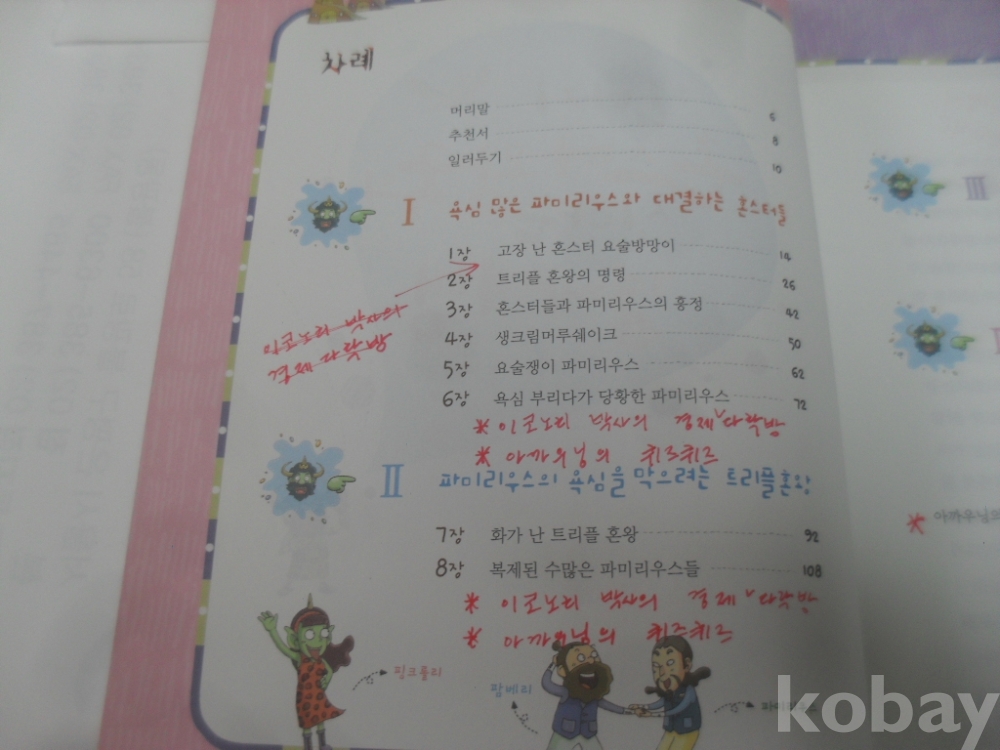 차례
머리말 6
추천서 8
일러두기 10
I 욕심 많은 파미리우스와 대결하는 혼스터들
1장 고장 난 혼스터 요술방망이 14
2장 트리플 혼왕의 명령 26
3장 혼스터들과 파미리우스의 흥정 42
4장 생크림머루쉐이크 50
5장 요술쟁이 파미리우스 62
6장 욕심 부리다가 당황한 파미리우스 72
이코노리 박사의
경제 다락방
* 이코노리 박사의 경제 다락방
* 아까우님의 퀴즈퀴즈
II 파미리우스의 욕심을 막으려는 트리플혼왕
7장 화가 난 트리플 혼왕 92
8장 복제된 수많은 파미리우스들 108
* 이코노리 박사의 경제 다락방
* 아까우님의 퀴즈퀴즈
핑크풀리
팜베리
파미리우스
III
* 아까우님의
kobay